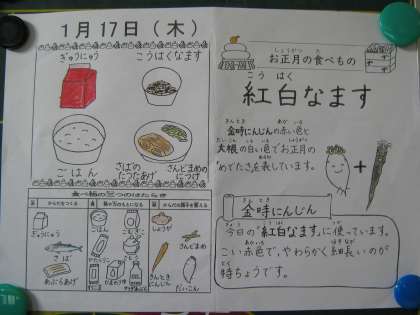 1月17日(木)
ぎゅうにゅう
こうはくなます
ごはん
さばの
たつたあげ
さんどまめの
につけ
食べ物の三つのはたらき
からだをつくる
熱や力のもとになる
からだの調子を整える
ぎゅうにゅう
さば
あぶらあげ
ごはん
こむぎこ
かたくりこ
さとう
しょうが
さんどまめ
きんとき
にんじん
だいこん
しょうがつ た
お正月の食べもの
こう はく
紅白なます
きんとき あか いろ
金時にんじんの赤い色と
だいこん しろ いろ しょうがつ
大根の白い色でお正月の
めでたさを表しています。
きん とき
金時にんじん
今日の"紅白なます"に使っています。
こい赤色で、やわらかく細長いのが
特ちょうです。